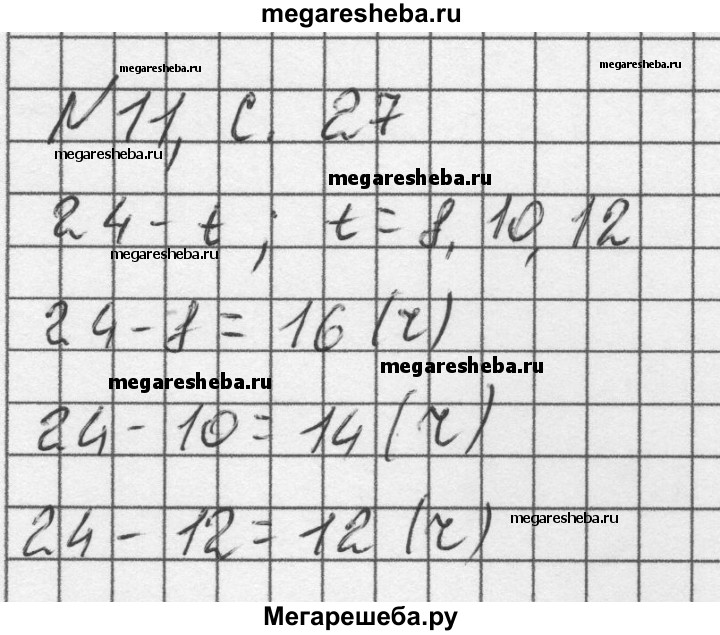 megaresheba.ru
megaresheba.ru megaresheba.ru
№11, с. 27
megaresheba.ru
megaresheba.ru
24 - t; t = 8, 10, 12
megaresheba.ru
24 - 8 = 16 (ч)
megaresheba.ru
megaresheba.ru
24 - 10 = 14 (ч)
megaresheba.ru
24 - 12 = 12 (ч)
Мегарешеба.ру